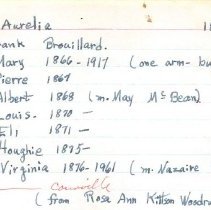 Aurelia 11
rank Brouillard.
Mary 1866-1917 (one arm- bu
Pierre 1867
Albert 1868 (m. May McBean)
Louis- 1870 -
Eli 1871 -
Houghie 1875-
Virginia 1876-1961 (m. Nazaire
Courville
(from Rosa Ann Kittson Woodru